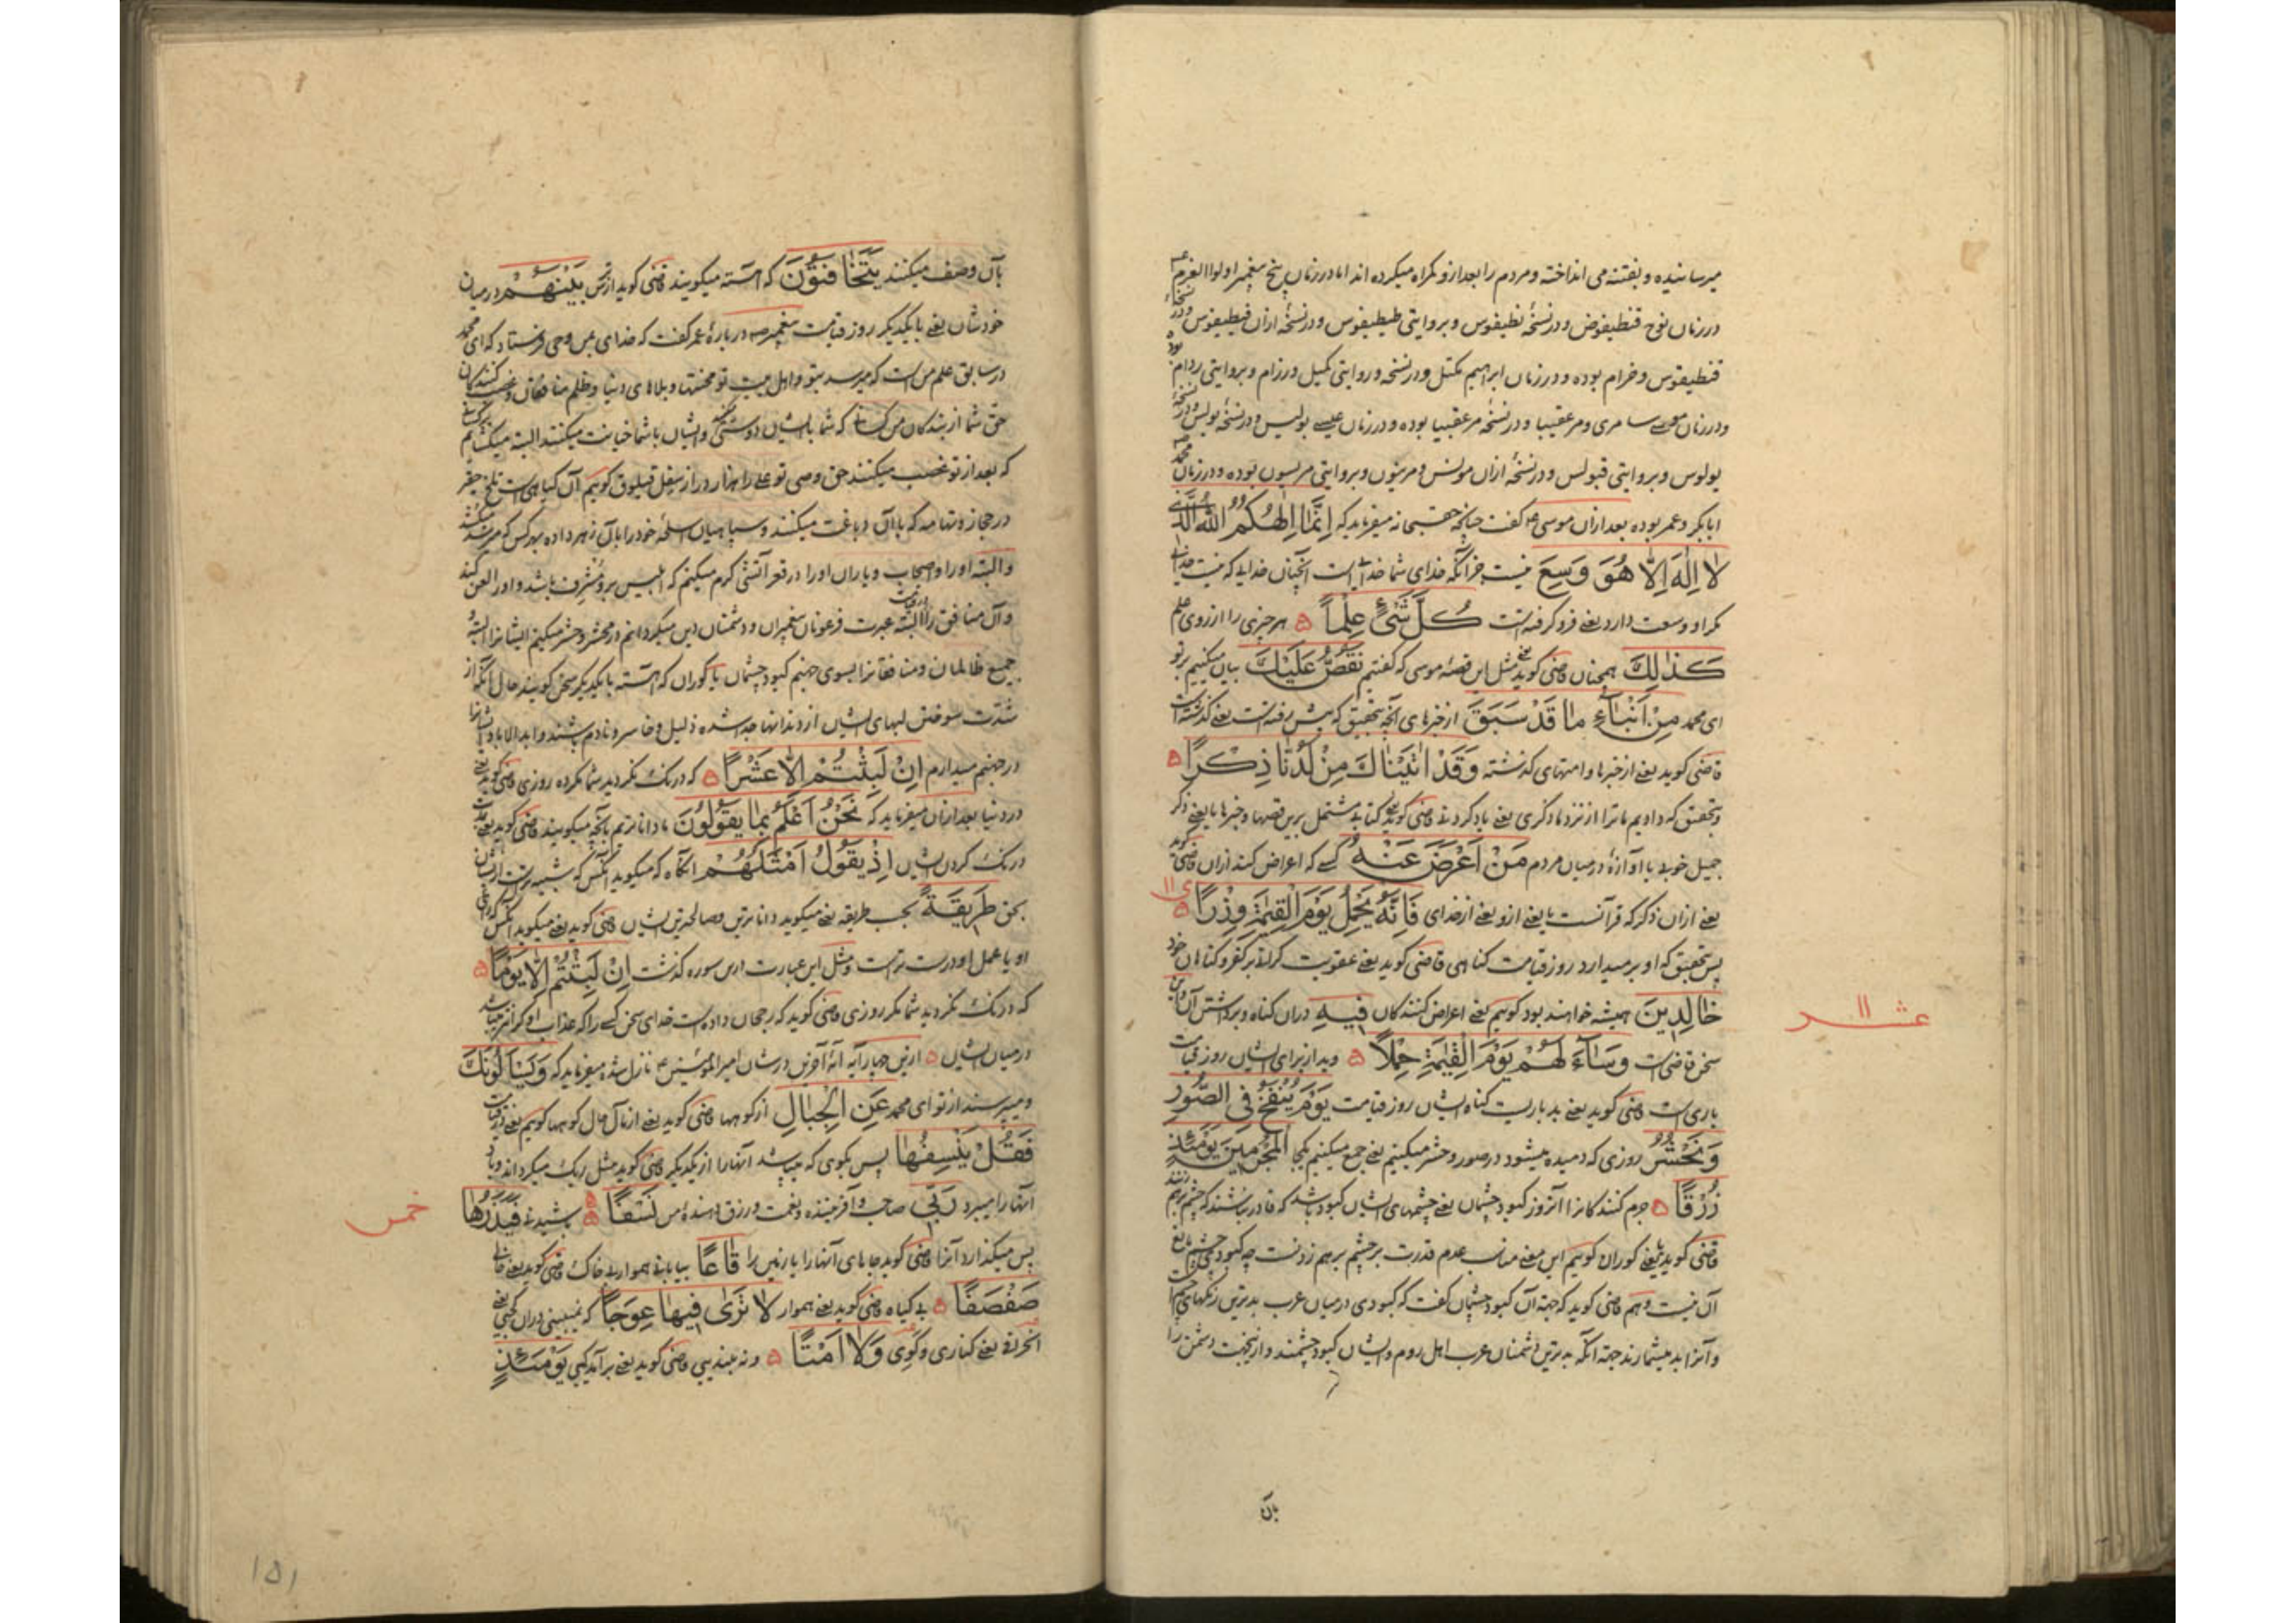 میرسانیده و بفتنه می انداخته و مردم را بعد ازو گمراه میکرده اند اما در زمان پنج پیغمبر اولوا العزم
در زمان نوح قنطیفوض و در نسخهٔ نطیفوس و بروایتی طیطیفوس و در نسخهٔ ازان فیطیفوس و در نسخهٔ
قنطیفوس و خرام بوده و در زمان ابراهیم مکثل و در نسخه و روایتی کمیل و رزام و بروایتی ردام بوده
و در زمان موسی سامری و مرعقیبا و در نسخهٔ مرعقبیا بوده و در زمان عیسی بولیس و در نسخهٔ بولس و در نسخهٔ
یولوس و بروایتی قبولس و در نسخهٔ ازان مولنس و مریتون و بروایتی مریسون بوده و در زمان محمد
ابابکر و عمر بوده بعد ازان موسی ع گفت چنانچه حقسبحانه میفرماید که اِنَّمَا اِلٰهُکُمُ اللّٰهُ الَّذِی
لَا اِلٰهَ اِلَّا هُوَ وَسِعَ نیست جز آنکه خدای شما خدایی است آنچنان خدایی که نیست خدایی
مگر او و وسعت دارد یعنی فرو گرفته است کُلَّ شَیْءٍ عِلْماً ۵ هر چیزی را از روی علم
کَذٰلِکَ همچنان قاضی گوید یعنی مثل این قصهٔ موسی که گفتیم نَقُصُّ عَلَیْکَ بیان میکنیم بر تو
ای محمد مِنْ اَنْبَاءِ مَا قَدْ سَبَقَ از خبرهای آنچه بتحقیق که پیش رفته است یعنی گذشته است
قاضی گوید یعنی از خبرها و امتهای گذشته وَقَدْ اٰتَیْنَاکَ مِنْ لَدُنَّا ذِکْرًا ۵
و بتحقیق که دادیم ما ترا از نزد ما ذکری یعنی یاد کردنی قاضی گوید یعنی کتابی مشتمل برین قصها و خبرها یا یعنی ذکر
جمیل خوبی با آوازهٔ در میان مردم مَنْ اَعْرَضَ عَنْهُ کسی که اعراض کند ازان قاضی گوید
یعنی ازان ذکر که قرآنست یا یعنی ازو یعنی از خدای فَاِنَّهُ یَحْمِلُ یَوْمَ الْقِیٰمَةِ وِزْرًا ۵
پس بتحقیق که او بر میدارد روز قیامت گناهی قاضی گوید یعنی عقوبت گرانی بر کفر و گناهان خود
خَالِدِینَ همیشه خواهند بود گوئیم یعنی اعراض کنندگان فِیهِ دران گناه و برداشتن آن و این
سخن قاضی است وَسَاءَ لَهُمْ یَوْمَ الْقِیٰمَةِ حِمْلًا ۵ و بد از برای ایشان روز قیامت
باری است قاضی گوید یعنی بد باریست گناه ایشان روز قیامت یَوْمَ یُنْفَخُ فِی الصُّورِ
وَنَحْشُرُ روزی که دمیده میشود در صور و حشر میکنیم یعنی جمع میکنیم یکجا الْمُجْرِمِینَ یَوْمَئِذٍ
زُرْقًا ۵ جرم کنندگانرا آنروز کبود چشمان یعنی چشمهای ایشان کبود باشد که قادر نباشند که چشم برهم زنند
قاضی گوید یعنی کوران گوئیم این معنی مناسب عدم قدرت بر چشم برهم زدنست چه کبود چشم مانع
آن نیست و هم قاضی گوید که جهة آن کبود چشمان گفت که کبودی در میان عرب بدترین رنگهای چشم است
و آنرا بد میشمارند جهة آنکه بدترین دشمنان عرب اهل روم و ایشان کبود چشمند و ازینجهت دشمن را
بآن
عشر ۱۱
بآن وصف میکنند یَتَخَافَتُونَ که آهسته میگویند قاضی گوید از ترس بَیْنَهُمْ در میان
خودشان یعنی با یکدیگر روز قیامت پیغمبر ص در بارهٔ عمر گفت که خدای بمن وحی فرستاد که ای محمد
در سابق علم من است که میرسد بتو و اهل بیت تو محنتها و بلاهای دنیا و ظلم منافقان و غصب کنندگان
حق شما از بندگان من کسانی که شما با ایشان دوستی کنید و ایشان با شما خیانت میکنند البته میکشایم
که بعد از تو غصب میکنند حق وصی تو علی را هزار در از سفل فیلوق گوئیم آن گیاهی است تلخ
در حجاز و تهامه که بآن دباغت میکنند و سپاهیان اسلحهٔ خود را بآن زهر داده بهر کس که میرسد میکشد
و البته او را و اصحاب و یاران او را در قعر آتشی گرم میکنم که ابلیس برو مشرف باشد و او را لعن کند
و آن منافق را البته عبرت فرعونان پیغمبران و دشمنان دین میگردانم در محشر و حشر میکنم ایشانرا البته
جمیع ظالمان و منافقانرا بسوی جهنم کبود چشمان یا کوران که آهسته با یکدیگر سخن گویند حال آنکه از
شدت سوختن لبهای ایشان از دندانها جدا شده ذلیل و خاسر و نادم باشند و ابد الاباد ایشانرا
در جهنم میدارم اِنْ لَبِثْتُمْ اِلَّا عَشْرًا ۵ که درنگ نکردید شما مگر ده روزی قاضی گوید یعنی
در دنیا بعد ازان میفرماید که نَحْنُ اَعْلَمُ بِمَا یَقُولُونَ ما دانا تریم بآنچه میگویند قاضی گوید یعنی مدت
درنگ کردن ایشان اِذْ یَقُولُ اَمْثَلُهُمْ آنگاه که میگوید آنکس که شبیه تر است از ایشان
بحق طَرِیقَةً بحسب طریقه یعنی میگوید دانا ترین و صالحترین ایشان قاضی گوید یعنی میگوید آنکس که رای
او یا عمل او درست تر است و مثل این عبارت درین سوره گذشت اِنْ لَبِثْتُمْ اِلَّا یَوْمًا ۵
که درنگ نکردید شما مگر روزی قاضی گوید که رجحان داده است خدای سخن کسی را که عذاب او گرانتر میباشد
در میان ایشان ۵ ازین چهار آیه آیهٔ آخرین در شان امیر المؤمنین ع نازل شده میفرماید که وَیَسْأَلُونَکَ
و میپرسند از تو ای محمد عَنِ الْجِبَالِ از کوهها قاضی گوید یعنی از مآل حال کوهها گوئیم یعنی در قیامت
فَقُلْ یَنْسِفُهَا پس بگوی که میپاشد آنها را از یکدیگر قاضی گوید مثل ریگ میگرداند و باد
آنها را میبرد رَبِّی صاحب و آفریننده و نعمت و رزق دهندهٔ من نَسْفًا ۵ پاشیدنی فَیَذَرُهَا
پس میگذارد آنرا قاضی گوید جاهای آنها را یا زمین را قَاعًا بیابانی هموار بی خاک قاضی گوید یعنی خالی
صَفْصَفًا ۵ بی گیاه قاضی گوید یعنی هموار لَا تَرٰی فِیهَا عِوَجًا که نمیبینی دران کجی یعنی
انحرافی یعنی کناری و گوی وَلَا اَمْتًا ۵ و نه بلندیی قاضی گوید یعنی برآمدگیی یَوْمَئِذٍ
خمس
۱۵۱